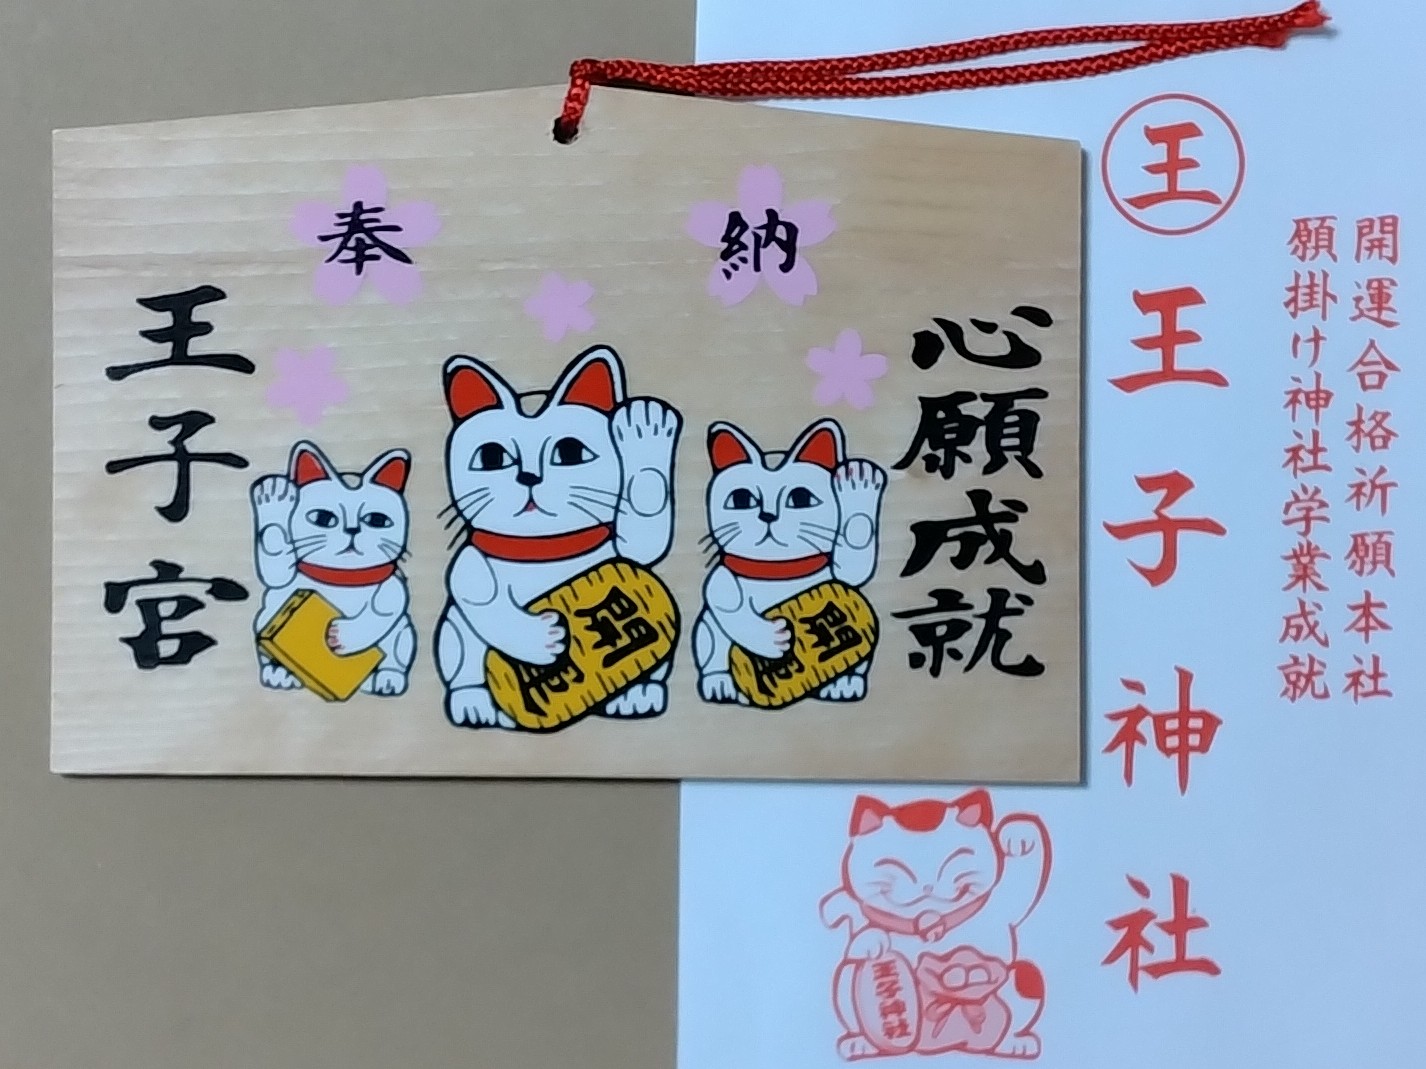 奉納
心願成就
王子宮
開運
開運
王
王子神社
開運合格祈願本社
願掛け神社学業成就
王子神社